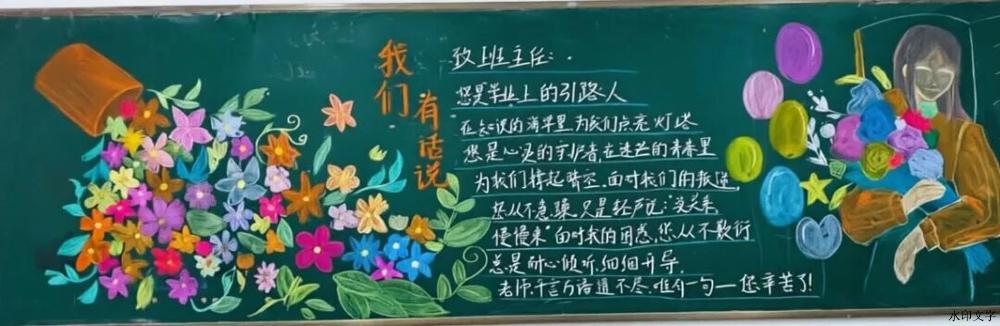 我们
有话说
致班主任：
您是毕业上的引路人
在知识的海洋里,为我们点亮灯塔
您是心灵的守护者,在迷茫的青春里
为我们撑起晴空,面对我们的叛逆,
您从不急躁,只是轻声说:"没关系,
慢慢来"面对我的困惑,您从不敷衍
总是耐心倾听,细细开导,
老师,千言万语道不尽,唯有一句—您辛苦了!
水印文字